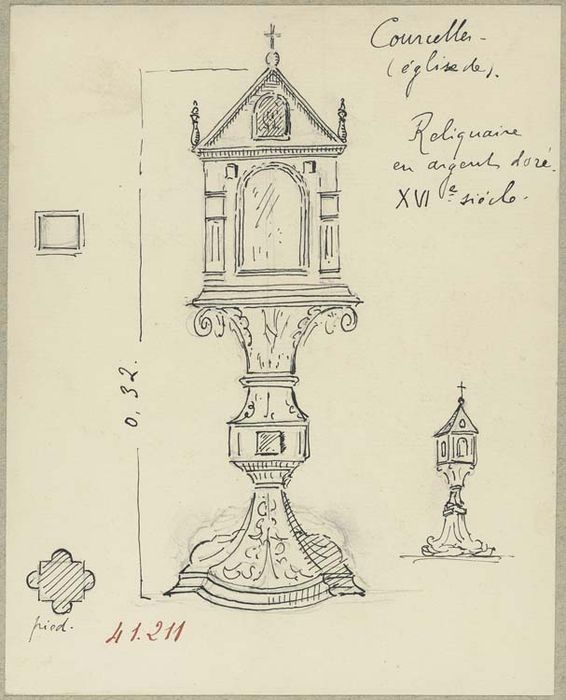 Courcelles -
(église de).
Reliquaire
en argent doré.
XVIe siècle.
0,32.
pied.
41.211